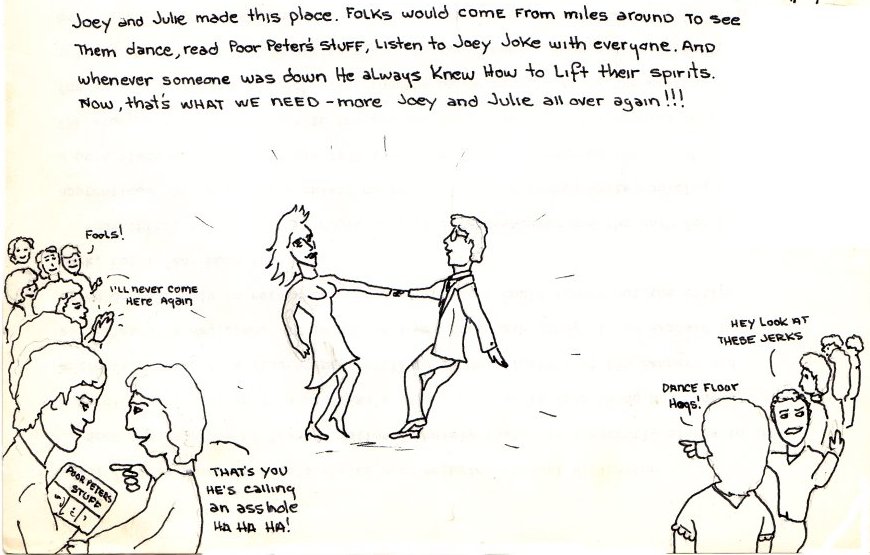 Joey and Julie made this place. Folks would come from miles around to see
Them dance, read Poor Peter's Stuff, Listen to Joey Joke with everyone. And
whenever someone was down He always Knew How to Lift their spirits.
Now, that's WHAT WE NEED - more Joey and Julie all over again!!!
Fools!
I'll never come
Here Again
HEY Look AT
THESE JERKS
DANCE FLOOR
Hogs!
POOR PETERS
STUFF
THAT'S YOU
HE'S calling
an asshole
HA HA HA!